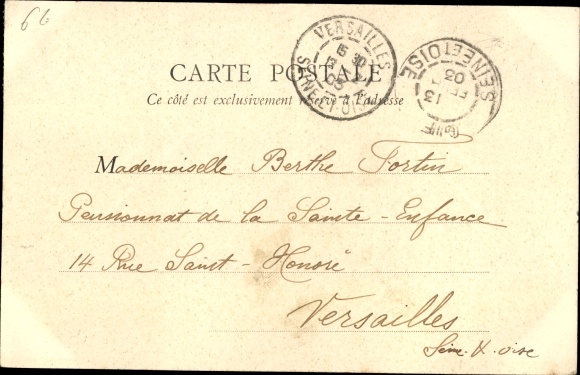 66
VERSAILLES
SEINE-ET-OISE
03
SEINE ET OISE
GIF
03
CARTE POSTALE
Ce côté est exclusivement réservé à l'adresse
Mademoiselle Berthe Fortin
Pensionnat de la Sainte-Enfance
14 Rue Saint-Honoré
Versailles
Seine & Oise